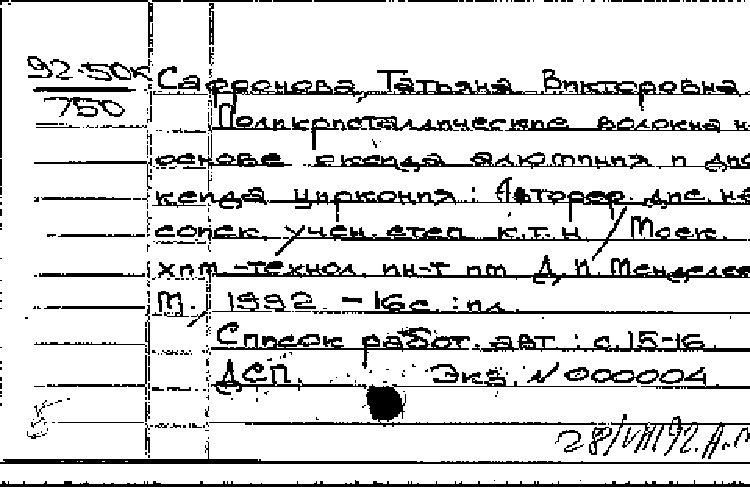 92-50к
750
Сафронова, Татьяна Викторовна
Поликристаллические волокна н
основе оксида алюминия и дио
ксида циркония : Автореф. дис. на
соиск. учен. степ. к.т.н. / Моск.
хим.-технол. ин-т им. Д. И. Менделее
М., 1992. - 16 с. : ил.
Список работ. авт.: с. 15-16.
ДСП. Экз. N 000004.
28/VII 92. А.